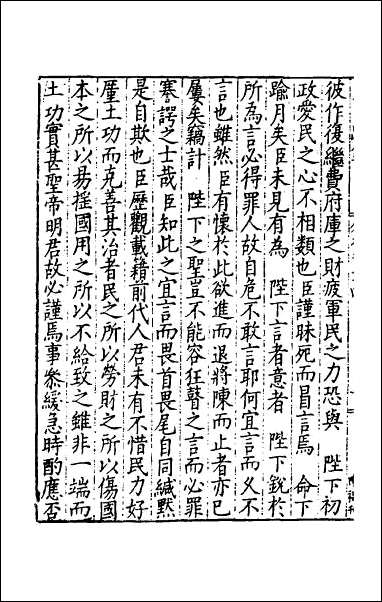 彼作復繼費府庫之財疲軍民之力恐與　陛下初
政愛民之心不相類也臣謹昧死而昌言焉　命下
踰月矣臣未見有為　陛下言者意者　陛下銳於
所為言必得罪人故自危不敢言耶何宜言而又不
言也雖然臣有懷於此欲進而退將陳而止者亦已
屢矣竊計　陛下之聖豈不能容狂瞽之言而必罪
蹇諤之士哉臣知此之宜言而畏首畏尾自同緘默
是自欺也臣歷觀載籍前代人君未有不惜民力好
壓土功而克善其治者民之所以勞財之所以傷國
本之所以易搖國用之所以不給致之雖非一端而
土功實甚聖帝明君故必謹焉事叅緩急時酌應否